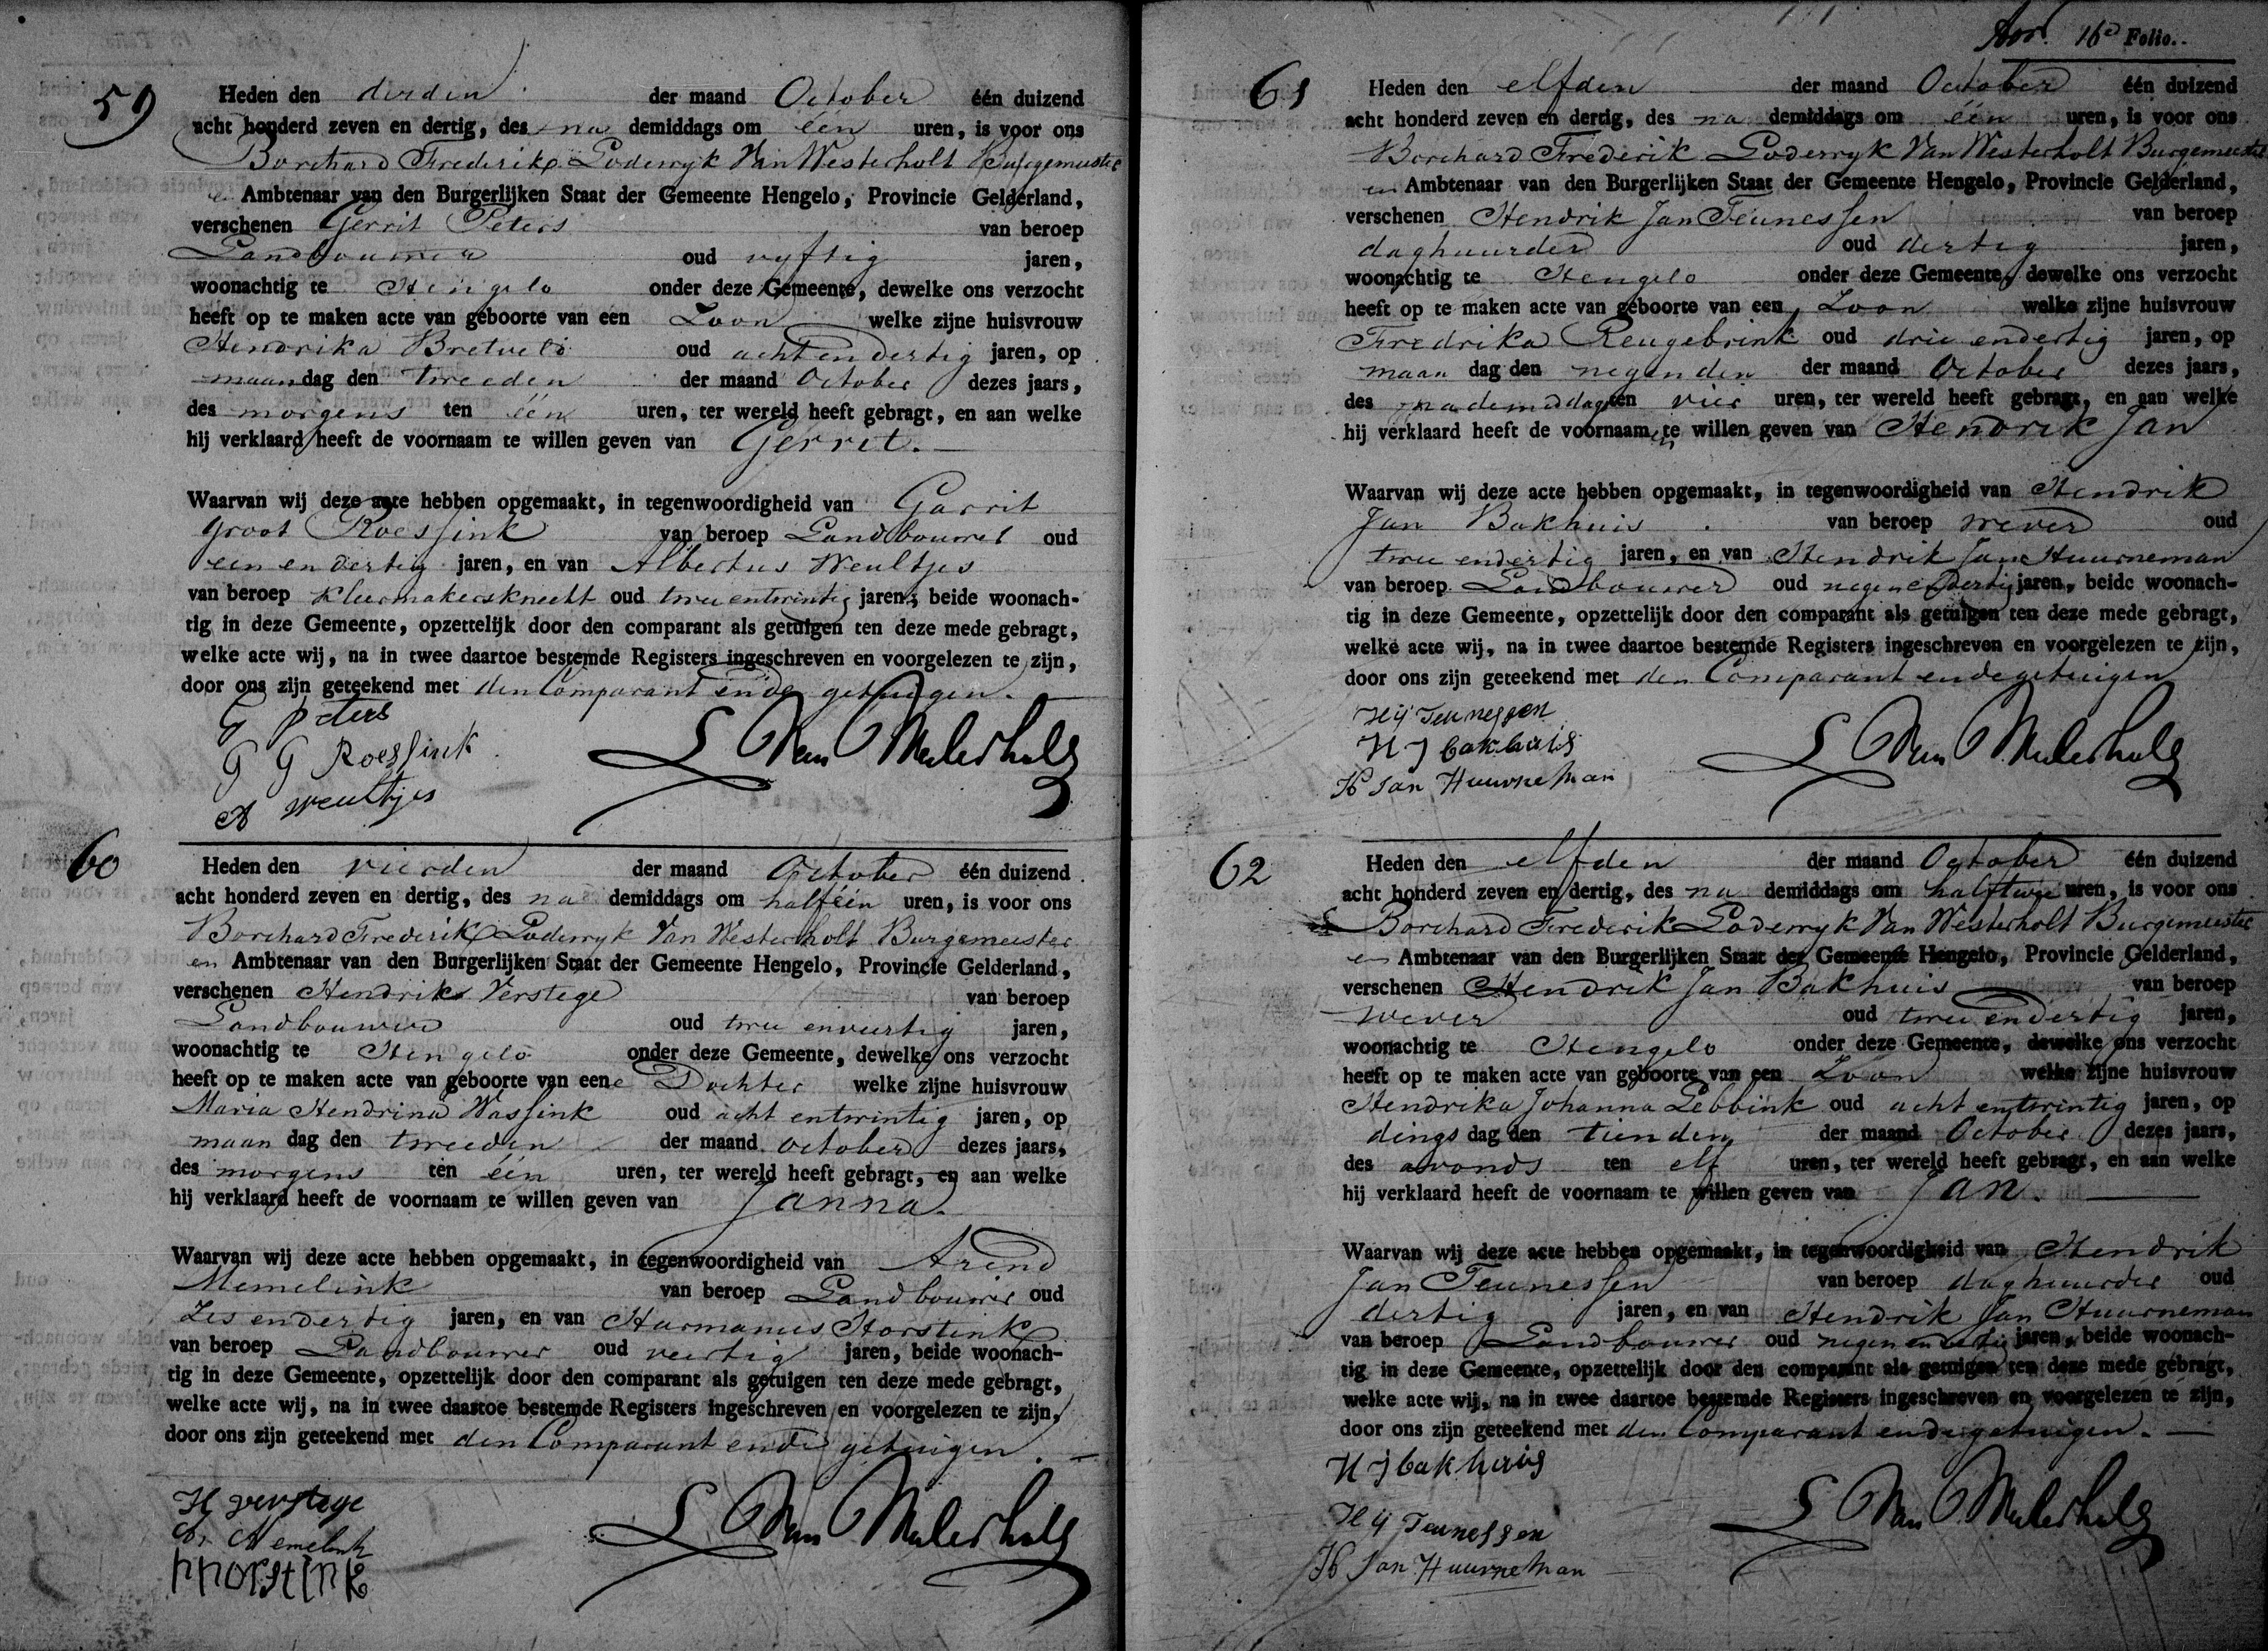 59
Heden den derden der maand October één duizend
acht honderd zeven en dertig, des na demiddags om één uren, is voor ons
Borchard Frederik Loderryk Van Westerholt Burgemeester
en Ambtenaar van den Burgerlijken Staat der Gemeente Hengelo, Provincie Gelderland,
verschenen Gerrit Peters van beroep
Landbouwer oud vyftig jaren,
woonachtig te Hengelo onder deze Gemeente, dewelke ons verzocht
heeft op te maken acte van geboorte van een Zoon welke zijne huisvrouw
Hendrika Bretveld oud acht en dertig jaren, op
maandag den tweeden der maand October dezes jaars,
des morgens ten één uren, ter wereld heeft gebragt, en aan welke
hij verklaard heeft de voornaam te willen geven van Gerret.
Waarvan wij deze acte hebben opgemaakt, in tegenwoordigheid van Garrit
Groot Roessink van beroep Landbouwer oud
een en dertig jaren, en van Albertus Weultjes
van beroep kleermakersknecht oud twee entwintig jaren, beide woonach-
tig in deze Gemeente, opzettelijk door den comparant als getuigen ten deze mede gebragt,
welke acte wij, na in twee daartoe bestemde Registers ingeschreven en voorgelezen te zijn,
door ons zijn geteekend met den Comparant en de getuigen.
G Peters
G G Roessink
A Weultjes
L Van Westerholt
60
Heden den vierden der maand October één duizend
acht honderd zeven en dertig, des na demiddags om half één uren, is voor ons
Borchard Frederik Loderryk Van Westerholt Burgemeester
en Ambtenaar van den Burgerlijken Staat der Gemeente Hengelo, Provincie Gelderland,
verschenen Hendrik Verstege van beroep
Landbouwer oud twee en veertig jaren,
woonachtig te Hengelo onder deze Gemeente, dewelke ons verzocht
heeft op te maken acte van geboorte van eene Dochter welke zijne huisvrouw
Maria Hendrina Wassink oud acht entwintig jaren, op
maan dag den tweeden der maand October dezes jaars,
des morgens ten één uren, ter wereld heeft gebragt, en aan welke
hij verklaard heeft de voornaam te willen geven van Janna.
Waarvan wij deze acte hebben opgemaakt, in tegenwoordigheid van Arend
Memelink van beroep Landbouwer oud
Zes en dertig jaren, en van Harmanus Horstink
van beroep Landbouwer oud veertig jaren, beide woonach-
tig in deze Gemeente, opzettelijk door den comparant als getuigen ten deze mede gebragt,
welke acte wij, na in twee daartoe bestemde Registers ingeschreven en voorgelezen te zijn,
door ons zijn geteekend met den Comparant en de getuigen.
H Verstege
Memelink
H Horstink
L Van Westerholt
16e Folio.
61
Heden den elfden der maand October één duizend
acht honderd zeven en dertig, des na demiddags om één uren, is voor ons
Borchard Frederik Loderryk Van Westerholt Burgemeester
en Ambtenaar van den Burgerlijken Staat der Gemeente Hengelo, Provincie Gelderland,
verschenen Hendrik Jan Teunessen van beroep
daghuurder oud dertig jaren,
woonachtig te Hengelo onder deze Gemeente, dewelke ons verzocht
heeft op te maken acte van geboorte van een Zoon welke zijne huisvrouw
Fredrika Reugebrink oud drie en dertig jaren, op
maan dag den negenden der maand October dezes jaars,
des nademiddags ten vier uren, ter wereld heeft gebragt, en aan welke
hij verklaard heeft de voornaamen te willen geven van Hendrik Jan
Waarvan wij deze acte hebben opgemaakt, in tegenwoordigheid van Hendrik
Jan Bakhuis van beroep wever oud
twee en dertig jaren, en van Hendrik Jan Huurneman
van beroep Landbouwer oud negen en dertig jaren, beide woonach-
tig in deze Gemeente, opzettelijk door den comparant als getuigen ten deze mede gebragt,
welke acte wij, na in twee daartoe bestemde Registers ingeschreven en voorgelezen te zijn,
door ons zijn geteekend met den Comparant en de getuigen
H ij Teunessen
H J bakhuis
H Jan Huurneman
L Van Westerholt
62
Heden den elfden der maand October één duizend
acht honderd zeven en dertig, des na demiddags om half twee uren, is voor ons
Borchard Frederik Loderryk Van Westerholt Burgemeester
en Ambtenaar van den Burgerlijken Staat der Gemeente Hengelo, Provincie Gelderland,
verschenen Hendrik Jan Bakhuis van beroep
wever oud twee en dertig jaren,
woonachtig te Hengelo onder deze Gemeente, dewelke ons verzocht
heeft op te maken acte van geboorte van een Zoon welke zijne huisvrouw
Hendrika Johanna Lebbink oud acht entwintig jaren, op
dings dag den tienden der maand October dezes jaars,
des avonds ten elf uren, ter wereld heeft gebragt, en aan welke
hij verklaard heeft de voornaam te willen geven van Jan.
Waarvan wij deze acte hebben opgemaakt, in tegenwoordigheid van Hendrik
Jan Teunessen van beroep daghuurder oud
dertig jaren, en van Hendrik Jan Huurneman
van beroep Landbouwer oud negen en dertig jaren, beide woonach-
tig in deze Gemeente, opzettelijk door den comparant als getuigen ten deze mede gebragt,
welke acte wij, na in twee daartoe bestemde Registers ingeschreven en voorgelezen te zijn,
door ons zijn geteekend met den Comparant en de getuigen.
H J bakhuis
H ij Teunessen
H Jan Huurneman
L Van Westerholt